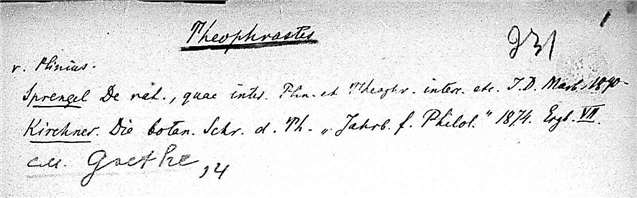 Theophrastes
931
v. Plinius.
Sprengel De rat., quae inter. Plin. et Theophr. interc. etc. I.D. Marb. 1890.
Kirchner. Die botan. Schr. d. Th. „Jahrb. f. Philol." 1874. Ergb. VII.
Goethe, 94